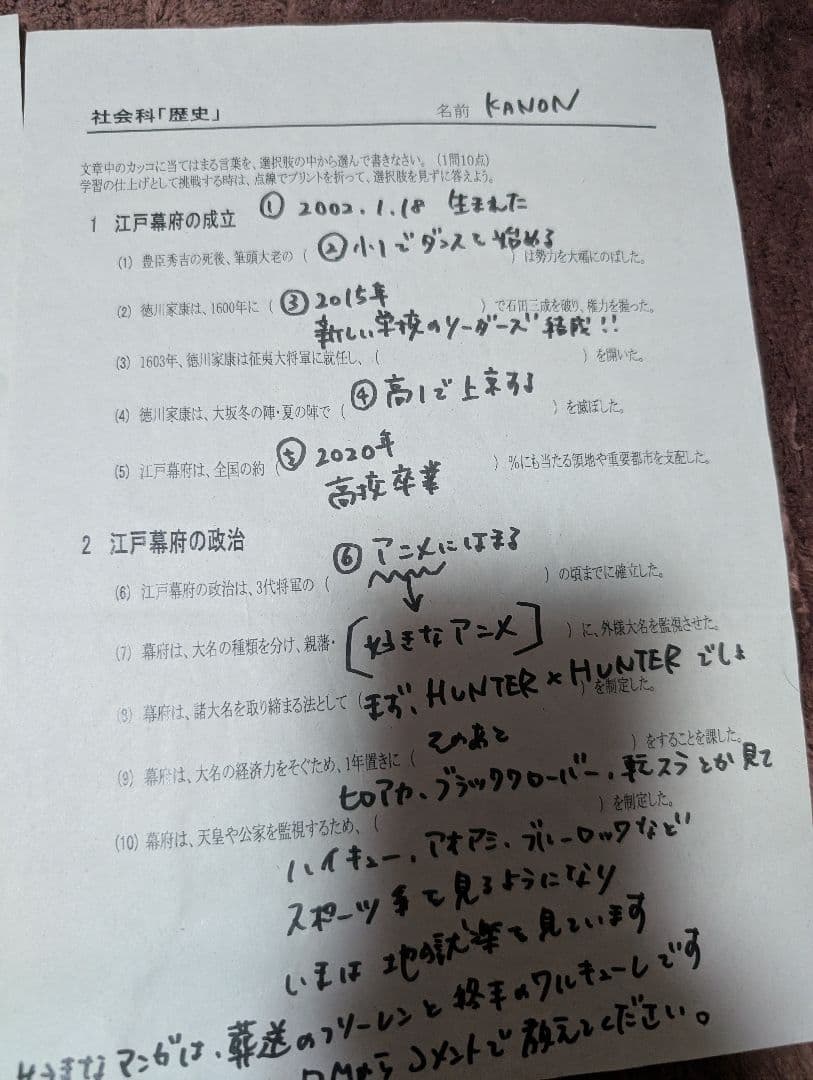 社会科「歴史」 名前 KANON
文章中のカッコに当てはまる言葉を、選択肢の中から選んで書きなさい。(1問10点)
学習の仕上げとして挑戦する時は、点線でプリントを折って、選択肢を見ずに答えよう。
1 江戸幕府の成立 ① 2002.1.18 生まれた
(1) 豊臣秀吉の死後、筆頭大老の( ② 小1でダンスを始める )は勢力を大幅にのばした。
(2) 徳川家康は、1600年に( ③ 2015年 )で石田三成を破り、権力を握った。
新しい学校のリーダーズ結成!!
(3) 1603年、徳川家康は征夷大将軍に就任し、( )を開いた。
(4) 徳川家康は、大坂冬の陣・夏の陣で( ④ 高1で上京する )を滅ぼした。
(5) 江戸幕府は、全国の約( ⑤ 2020年 )%にも当たる領地や重要都市を支配した。
高校卒業
2 江戸幕府の政治
⑥ アニメにはまる
(6) 江戸幕府の政治は、3代将軍の( )の頃までに確立した。
(7) 幕府は、大名の種類を分け、親藩・[好きなアニメ] )に、外様大名を監視させた。
(8) 幕府は、諸大名を取り締まる法として(まず、HUNTER×HUNTERでしょ )を制定した。
(9) 幕府は、大名の経済力をそぐため、1年置きに( そのあと )をすることを課した。
ヒロアカ、ブラッククローバー、転スラとか見て
(10) 幕府は、天皇や公家を監視するため、( )を制定した。
ハイキュー、アオアシ、ブルーロックなど
スポーツ系を見るようになり
いまは地獄楽を見ています
好きなマンガは、葬送のフリーレンと終末のワルキューレです
DMからコメントで教えてください。